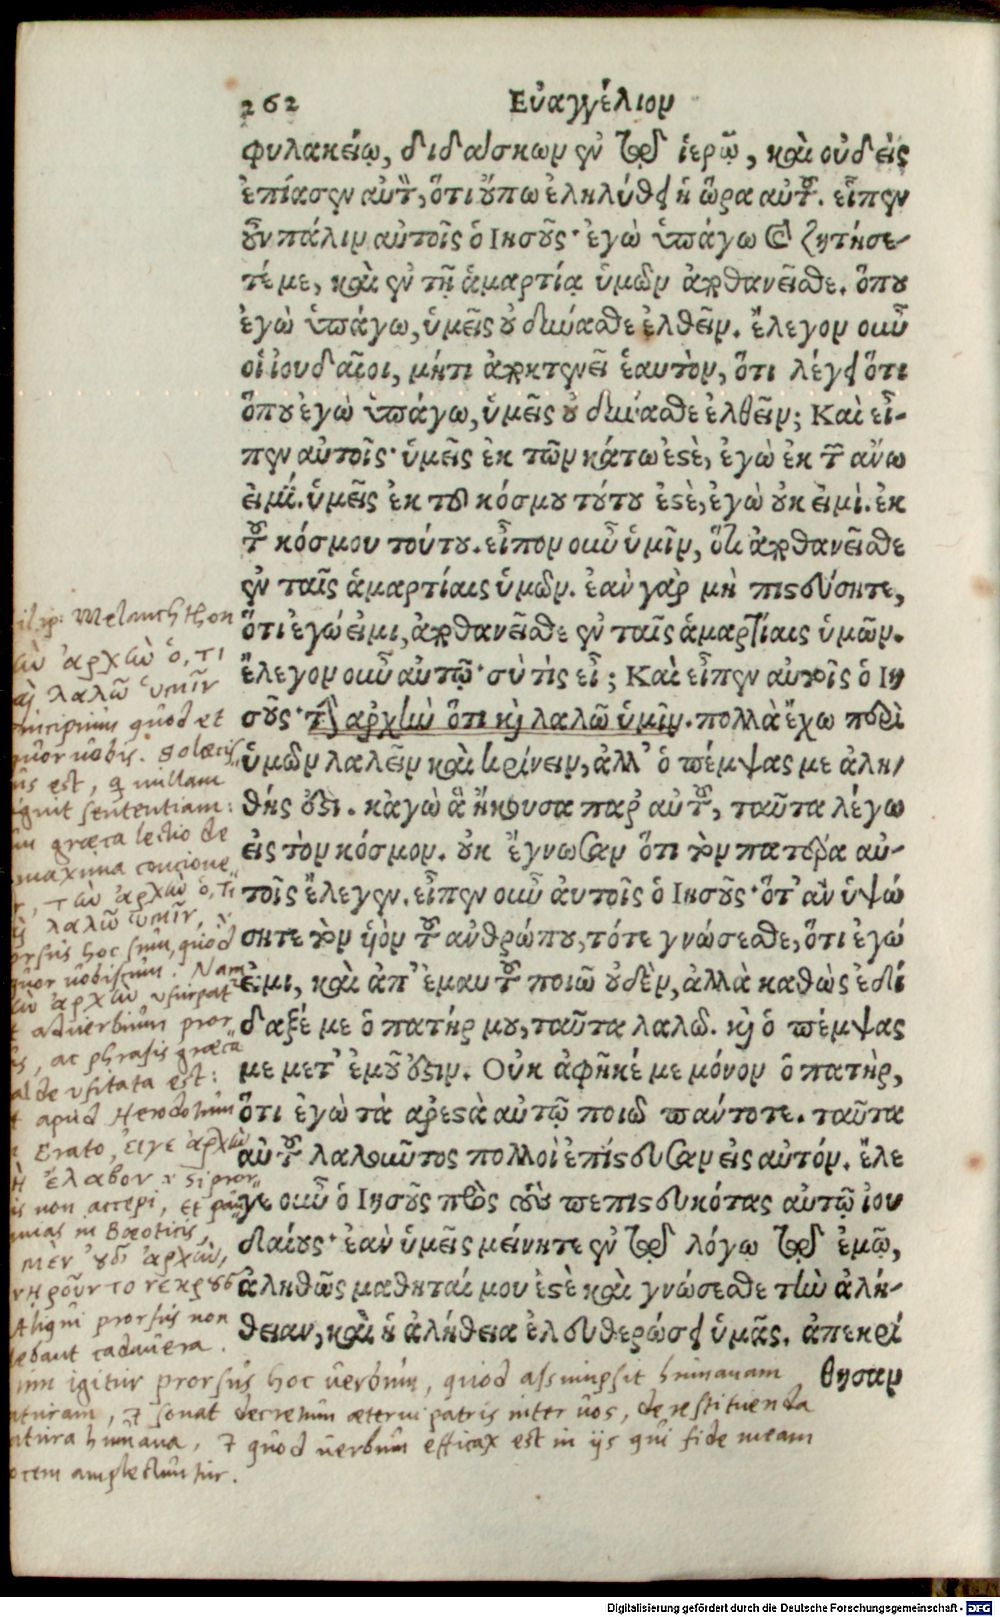 262 Εὐαγγέλιον
φυλακείῳ, διδάσκων ἐν τῷ ἱερῷ, καὶ οὐδεὶς
ἐπίασεν αὐτὸν, ὅτι οὔπω ἐληλύθει ἡ ὥρα αὐτοῦ. εἶπεν
οὖν πάλιν αὐτοῖς ὁ Ιησοῦς· ἐγὼ ὑπάγω καὶ ζητήσε-
τέ με, καὶ ἐν τῇ ἁμαρτίᾳ ὑμῶν ἀποθανεῖσθε. ὅπου
ἐγὼ ὑπάγω, ὑμεῖς οὐ δύνασθε ἐλθεῖν. ἔλεγον οὖν
οἱ ἰουδαῖοι, μήτι ἀποκτενεῖ ἑαυτὸν, ὅτι λέγει ὅτι
ὅπου ἐγὼ ὑπάγω, ὑμεῖς οὐ δύνασθε ἐλθεῖν; Καὶ εἶ-
πεν αὐτοῖς· ὑμεῖς ἐκ τῶν κάτω ἐστὲ, ἐγὼ ἐκ τῶν ἄνω
εἰμί. ὑμεῖς ἐκ τοῦ κόσμου τούτου ἐστὲ, ἐγὼ οὐκ εἰμὶ. ἐκ
τοῦ κόσμου τούτου. εἶπον οὖν ὑμῖν, ὅτι ἀποθανεῖσθε
ἐν ταῖς ἁμαρτίαις ὑμῶν. ἐὰν γὰρ μὴ πιστεύσητε,
ὅτι ἐγώ εἰμι, ἀποθανεῖσθε ἐν ταῖς ἁμαρτίαις ὑμῶν.
ἔλεγον οὖν αὐτῷ· σὺ τὶς εἶ; Καὶ εἶπεν αὐτοῖς ὁ Ιη
σοῦς· τὴν ἀρχὴν ὅτι καὶ λαλῶ ὑμῖν. πολλὰ ἔχω περὶ
ὑμῶν λαλεῖν καὶ κρίνειν, ἀλλ' ὁ πέμψας με ἀλη/
θής ἐστι. κἀγὼ ἃ ἤκουσα παρ' αὐτοῦ, ταῦτα λέγω
εἰς τὸν κόσμον. οὐκ ἔγνωσαν ὅτι τὸν πατέρα αὐ-
τοῖς ἔλεγεν. εἶπεν οὖν ἀυτοῖς ὁ Ιησοῦς· ὅτ' ἂν ὑψώ
σητε τὸν ὑὸν τοῦ ἀνθρώπου, τότε γνώσεσθε, ὅτι ἐγώ
εἰμι, καὶ ἀπ' ἐμαυτοῦ ποιῶ οὐδὲν, ἀλλὰ καθὼς ἐδί
δαξέ με ὁ πατήρ μου, ταῦτα λαλῶ. καὶ ὁ πέμψας
με μετ' ἐμοῦ ἐστιν. Οὐκ ἀφῆκέ με μόνον ὁ πατὴρ,
ὅτι ἐγὼ τὰ ἀρεστὰ αὐτῷ ποιῶ πάντοτε. ταῦτα
αὐτοῦ λαλοῦντος πολλοὶ ἐπίστευσαν εἰς αὐτόν. ἔλε
γε οὖν ὁ Ιησοῦς πρὸς τοὺς πεπιστευκότας αὐτῷ ἰου
δαίους· ἐὰν ὑμεῖς μείνητε ἐν τῷ λόγῳ τῷ ἐμῷ,
ἀληθῶς μαθηταί μου ἐστὲ καὶ γνώσεσθε τὴν ἀλή-
θειαν, καὶ ἡ ἀλήθεια ἐλευθερώσει ὑμᾶς. ἀπεκρί
θησαν
Melanchthon
ἀρχὴν ὅ,τι
λαλῶ ὑμῖν
principium quod et
uobis. Solœcis
est, q nullam
sententiam:
græca lectio de
maxima concione
τὴν ἀρχὴν ὅ,τι
λαλῶ ὑμῖν,
hoc sum, quod
uobiscum. Nam
ἀρχὴν usurpat
aduerbium pror
, ac phrasis græca
usitata est:
apud Herodotum
Erato, εἴγε ἀρχὴν
ἔλαβον: si pror
non accepi, et pau
in Bœoticis,
μὲν οὐδ' ἀρχὴν,
νεκροὺς
Aliqui prorsus non
cadauera.
igitur prorsus hoc uerbum, quod assumpsit humanam
, & sonat decretum æterni patris inter uos, de restituenda
humana, & quod uerbum efficax est in ijs qui fide meam
amplectuntur.
Digitalisierung gefördert durch die Deutsche Forschungsgemeinschaft - DFG